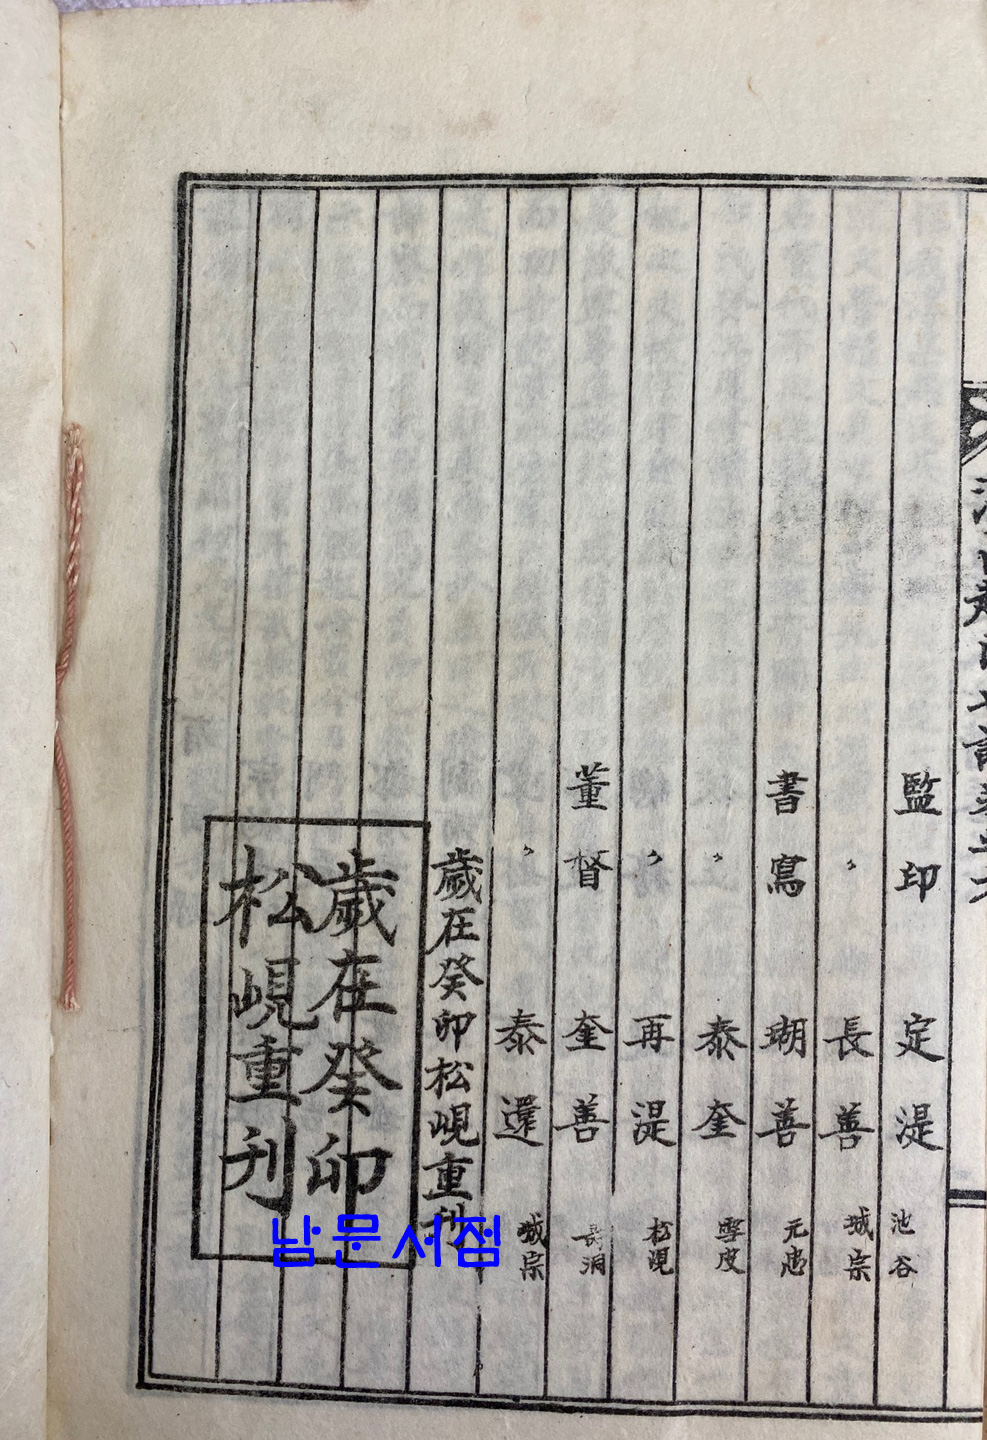 監印 定湜 池谷
〻 長善 城宗
書寫 瑚善 元忠
〻 泰奎 雪皮
〻 再湜 松峴
董督 奎善 長洞
〻 泰還 城宗
歲在癸卯松峴重刊
歲在癸卯
松峴重刊
남문서점